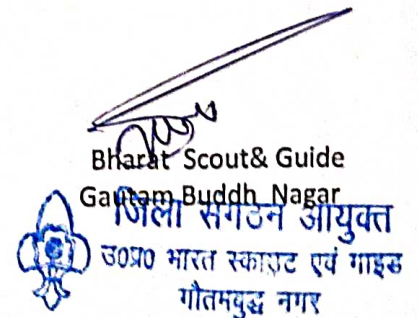 Bharat Scout& Guide
Gautam Buddh Nagar
जिला संगठन आयुक्त
उ०प्र० भारत स्काउट एवं गाइड
गौतमबुद्ध नगर